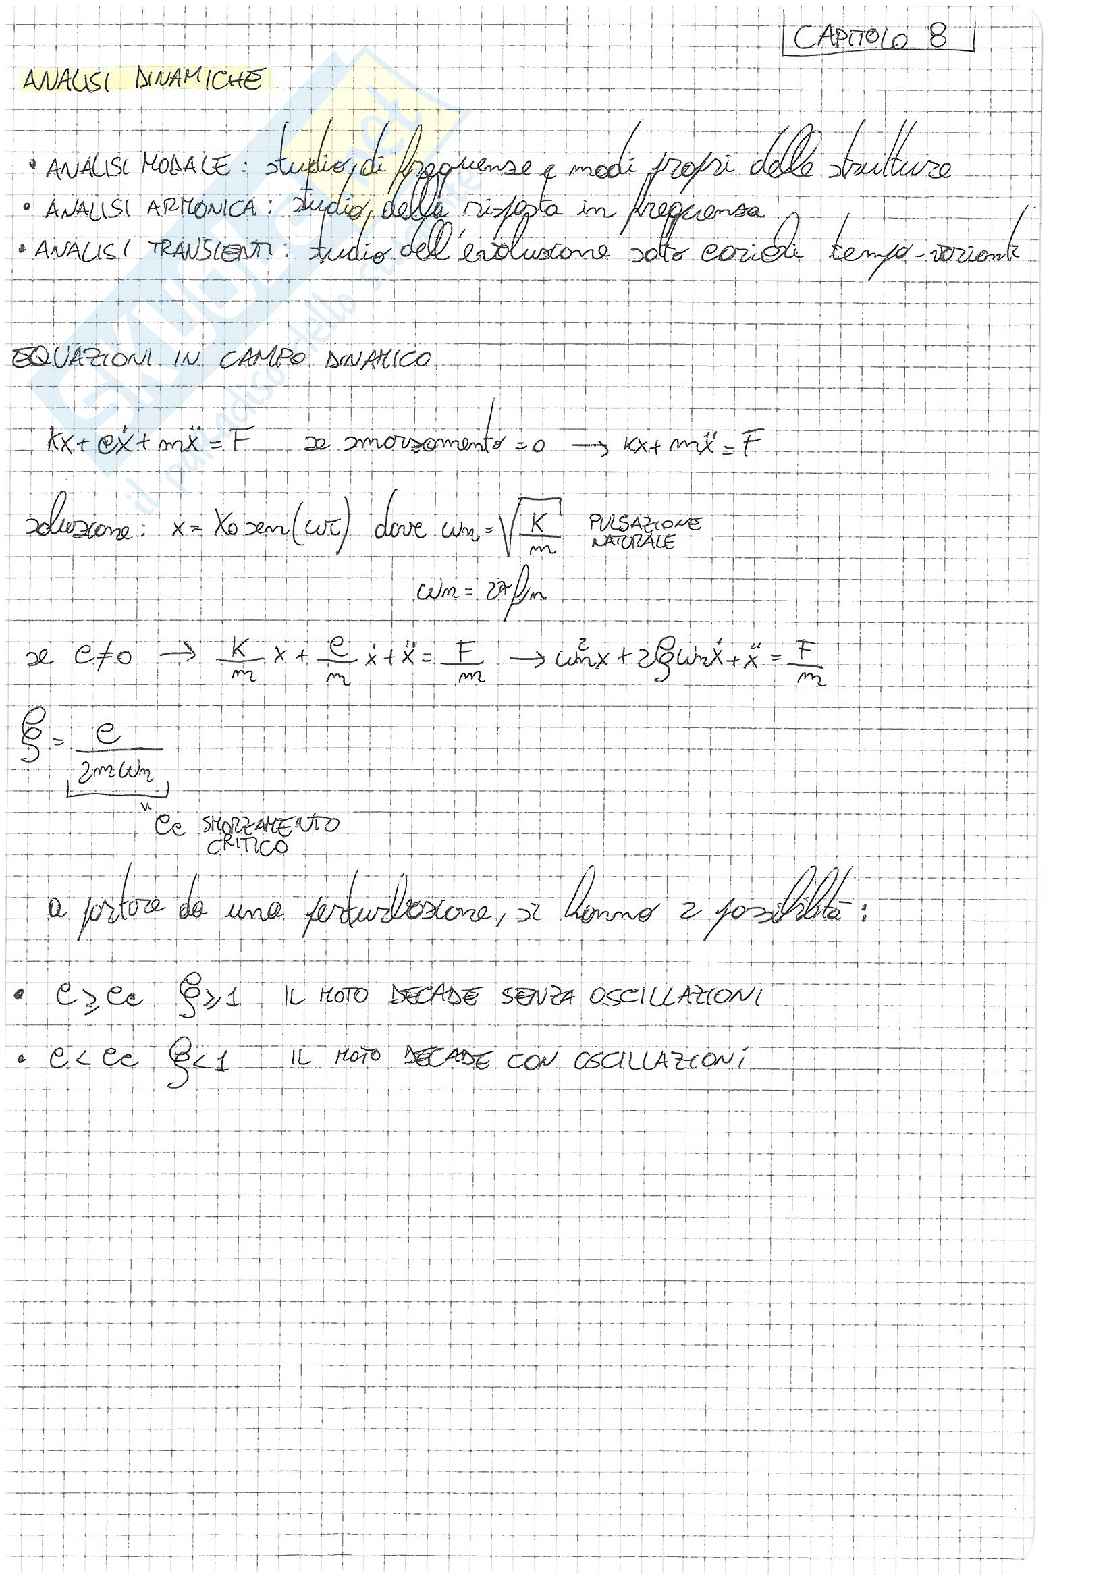 CAPITOLO 8
ANALISI DINAMICHE
• ANALISI MODALE: studio di frequenze e modi propri delle strutture
• ANALISI ARMONICA: studio della risposta in frequenza
• ANALISI TRANSIENTI: studio dell'evoluzione sotto carichi tempo-varianti
EQUAZIONI IN CAMPO DINAMICO
kx + cẋ + mẍ = F se smorzamento = 0 → kx + mẍ = F
soluzione: x = X₀ sen(ωt) dove ωn = √(K/m) PULSAZIONE NATURALE
ωn = 2πfn
se c ≠ 0 → K/m x + c/m ẋ + ẍ = F/m → ωn²x + 2ξωnẋ + ẍ = F/m
ξ = c/(2mωn)
cc SMORZAMENTO
CRITICO
a partire da una perturbazione, si hanno 2 possibilità:
• c ≥ cc ξ ≥ 1 IL MOTO DECADE SENZA OSCILLAZIONI
• c < cc ξ < 1 IL MOTO DECADE CON OSCILLAZIONI